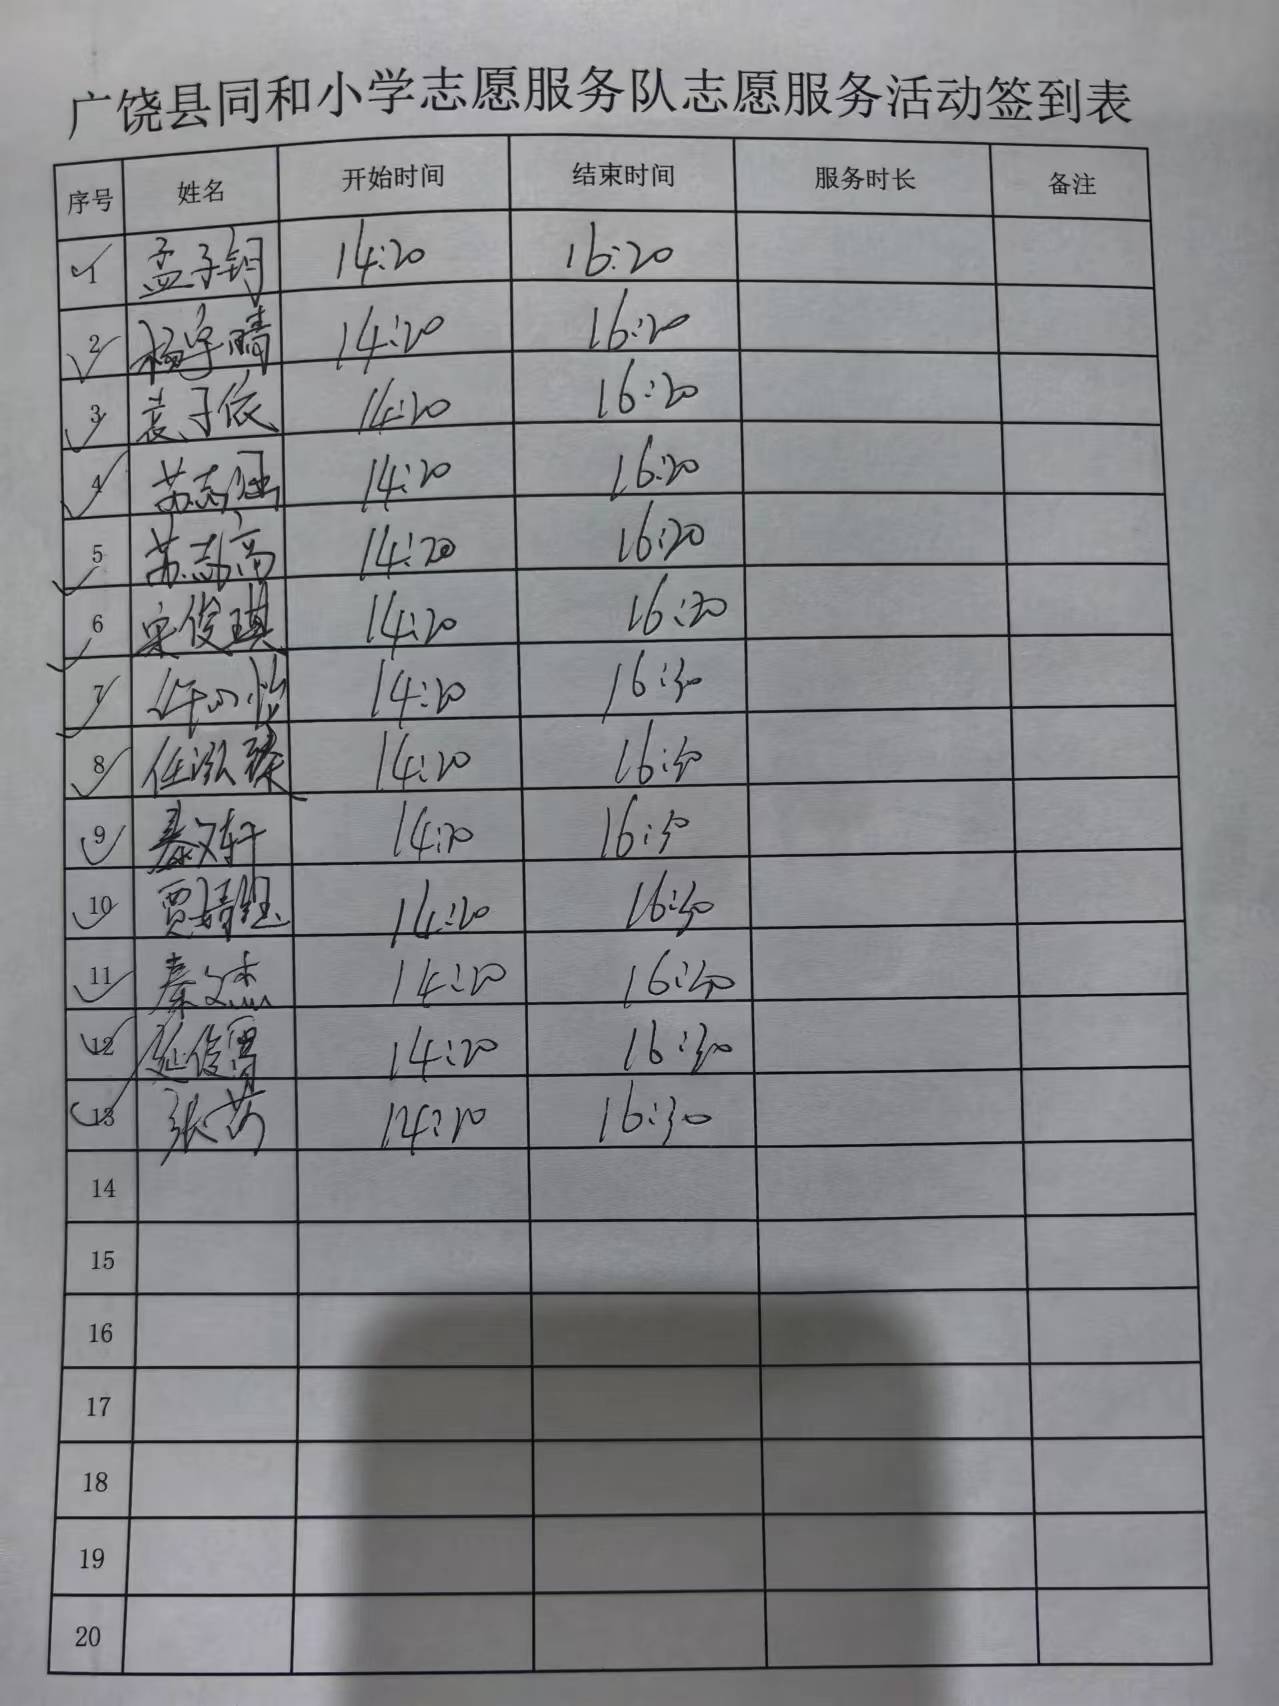 广饶县同和小学志愿服务队志愿服务活动签到表
序号 姓名 开始时间 结束时间 服务时长 备注
1 孟子钥 14:20 16:20
2 杨宇晴 14:20 16:20
3 袁子依 14:20 16:20
4 苏志 14:20 16:20
5 苏志高 14:20 16:20
6 宋俊琪 14:20 16:20
7 14:20 16:30
8 任泓臻 14:20 16:30
9 秦文轩 14:20 16:30
10 贾婧 14:20 16:30
11 秦文杰 14:20 16:30
12 延俊 14:20 16:30
13 张 14:20 16:30
14
15
16
17
18
19
20